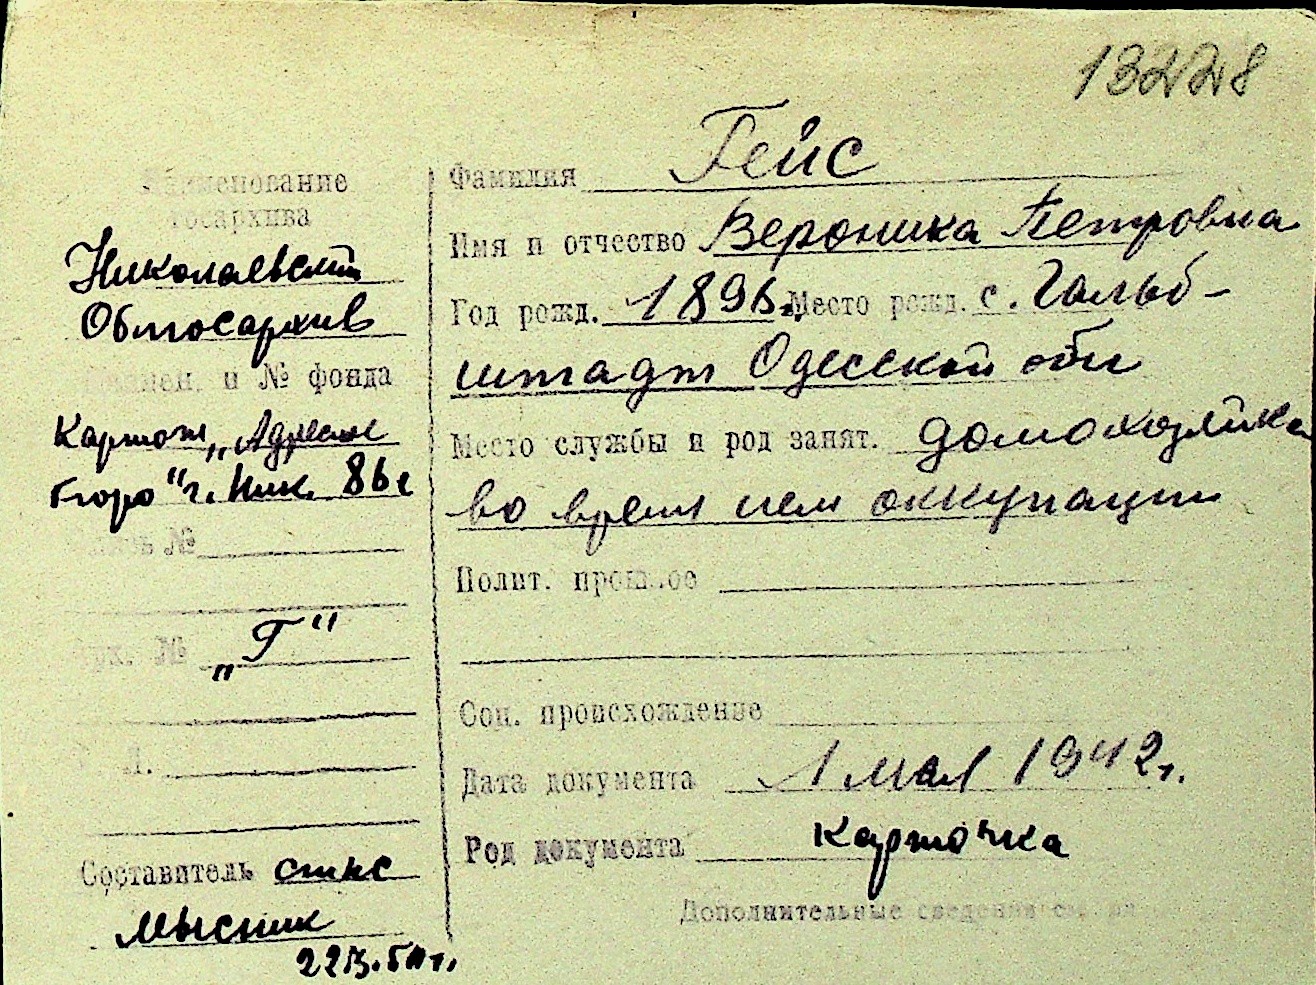 13228
Наименование
госархива
Николаевский
Облгосархив
и № фонда
Картот. „Адресное
бюро" г. Ник. 86г
№
„Г"
Составитель
Мысник
Фамилия Гейс
Имя и отчество Вероника Петровна
Год рожд. Место рожд. с. Гальб-
штадт Одесской обл
Место службы и род занят. домохозяйка
во время нем оккупации
Полит. прошлое
Соц. происхождение
Дата документа 1 мая 1942г.
Род документа карточка
Дополнительные сведения см. на